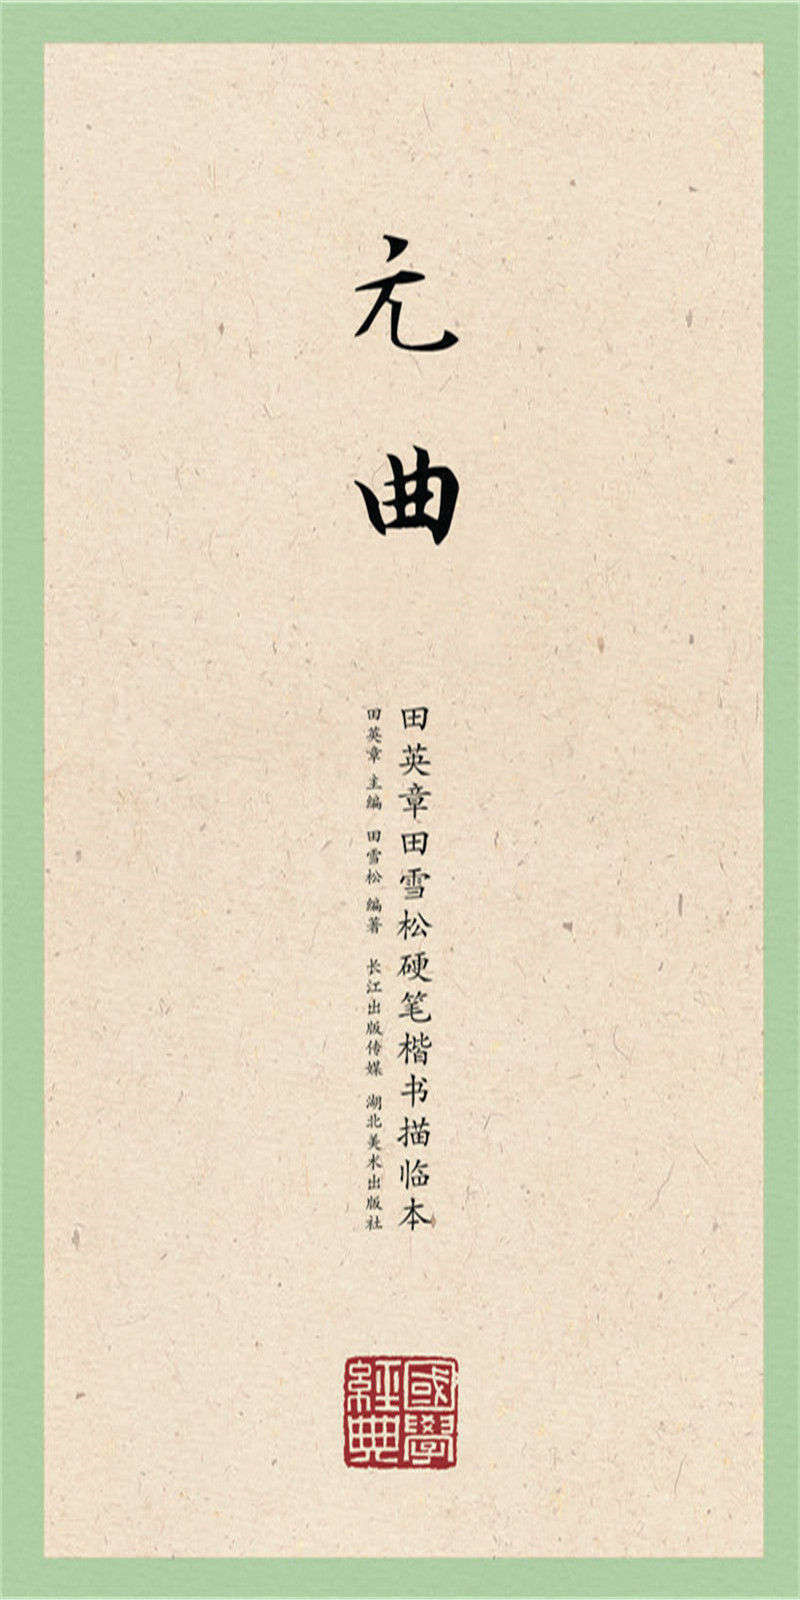 元曲
田英章田雪松硬笔楷书描临本
田英章 主编 田雪松 编著 长江出版传媒 湖北美术出版社
國學
經典